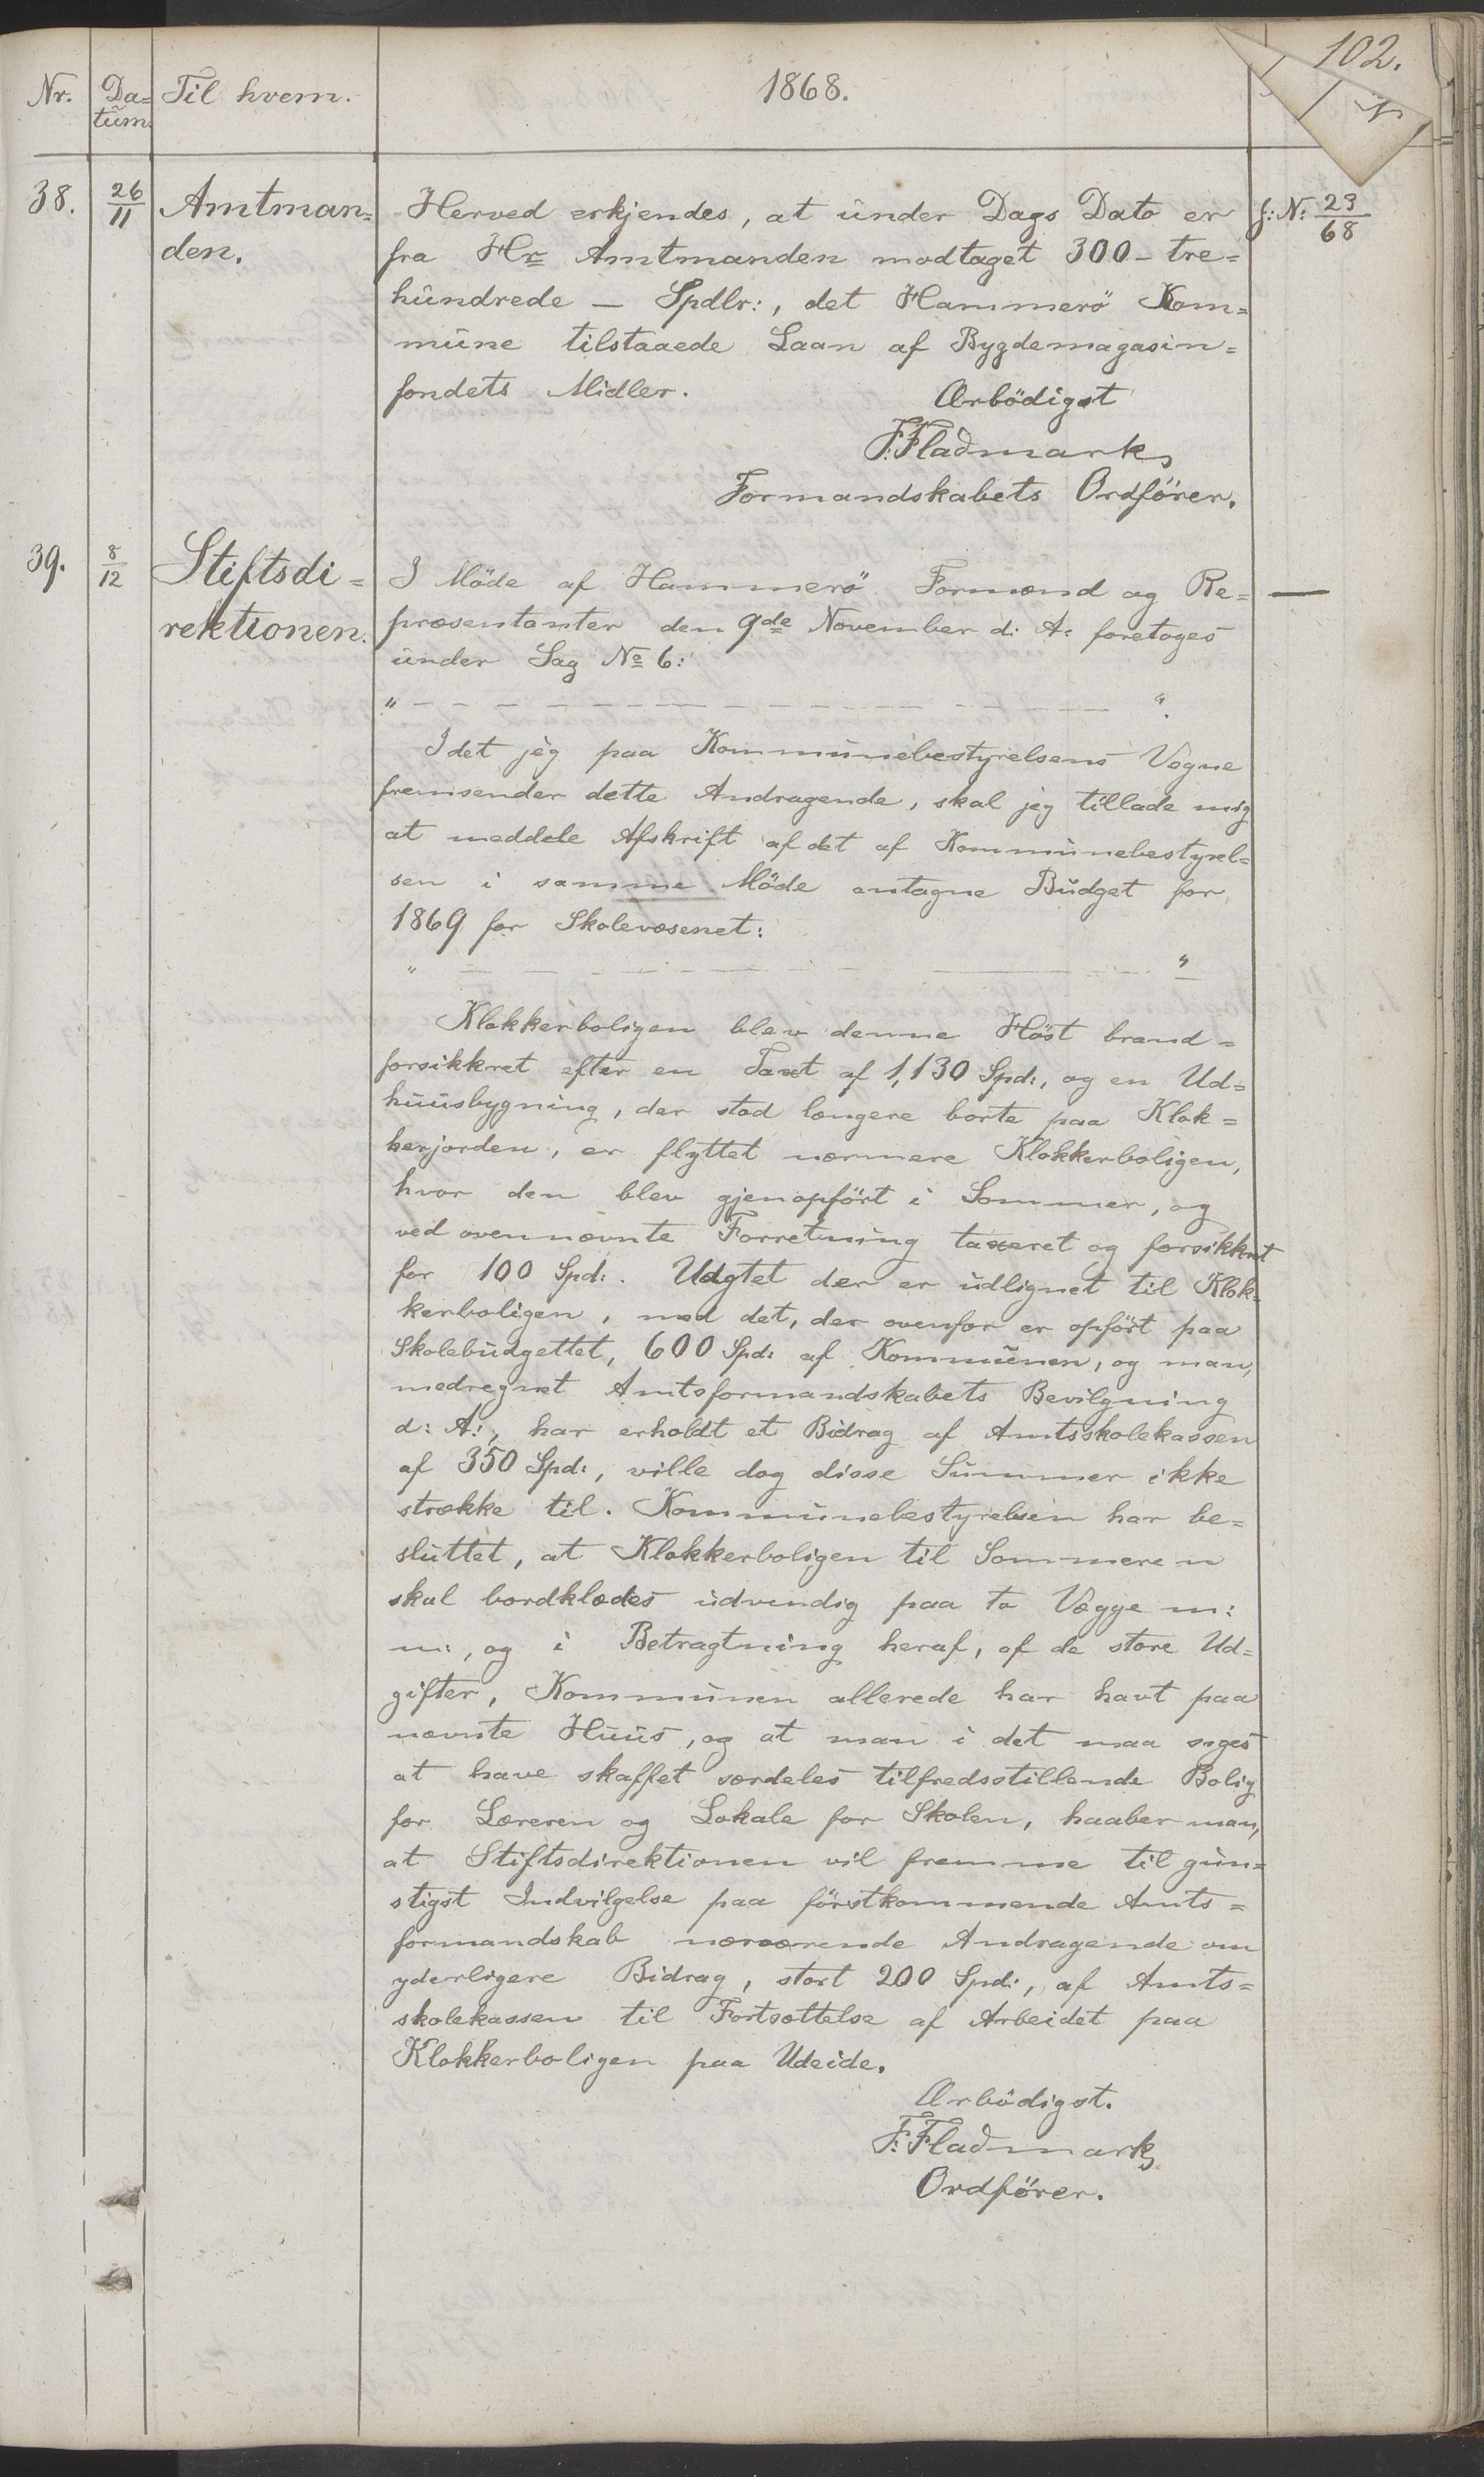 102.
Nr. Da= Til hvem. 1868.
tum.
38. 26/11 Amtman= Herved erkjendes, at under Dags Dato er J: N: 23/68
den. fra Hr Amtmanden modtaget 300 - tre=
hundrede - Spdlr:, det Hammerö Kom=
mune tilstaaede Laan af Bygdemagasin=
fondets Midler. Ærbödigst
F. Fladmark,
Formandskabets Ordförer.
39. 8/12 Stiftsdi= I Möde af Hammerö Formænd og Re= —
rektionen. præsentanter den 9de November d: A: foretoges
under Sag No 6:
" - - - - - - - - - - - - - - - - "
Idet jeg paa Kommunebestyrelsens Vegne
fremsender dette Andragende, skal jeg tillade mig
at meddele Afskrift af det af Kommunebestyrel=
sen i samme Möde antagne Budget for
1869 for Skolevæsenet:
" - - - - - - - - - - - - - - - - "
Klokkerboligen blev denne Höst brand=
forsikkret efter en Taxt af 1,130 Spd:, og en Ud=
huusbygning, der stod længere borte paa Klok=
kerjorden, er flyttet nærmere Klokkerboligen,
hvor den blev gjenopfört i Sommer, og
ved ovennævnte Forretning taxeret og forsikkret
for 100 Spd:. Udgtet der er udlignet til Klok=
kerboligen, med det, der ovenfor er opfört paa
Skolebudgettet, 600 Spd: af Kommunen, og man,
medregnet Amtsformandskabets Bevilgning
d: A:, har erholdt et Bidrag af Amtsskolekassen
af 350 Spd:, ville dog disse Summer ikke
strække til. Kommunebestyrelsen har be=
sluttet, at Klokkerboligen til Sommeren
skal bordklædes udvendig paa to Vægge m:
m:, og i Betragtning heraf, af de store Ud=
gifter, Kommunen allerede har havt paa
nævnte Huus, og at man i det maa siges
at have skaffet særdeles tilfredsstillende Bolig
for Læreren og Lokale for Skolen, haaber man,
at Stiftsdirektionen vil fremme til gun=
stigst Indvilgelse paa förstkommende Amts=
formandskab nærværende Andragende om
yderligere Bidrag, stort 200 Spd:, af Amts=
skolekassen til Fortsættelse af Arbeidet paa
Klokkerboligen paa Udeide.
Ærbödigst.
F. Fladmark,
Ordförer.